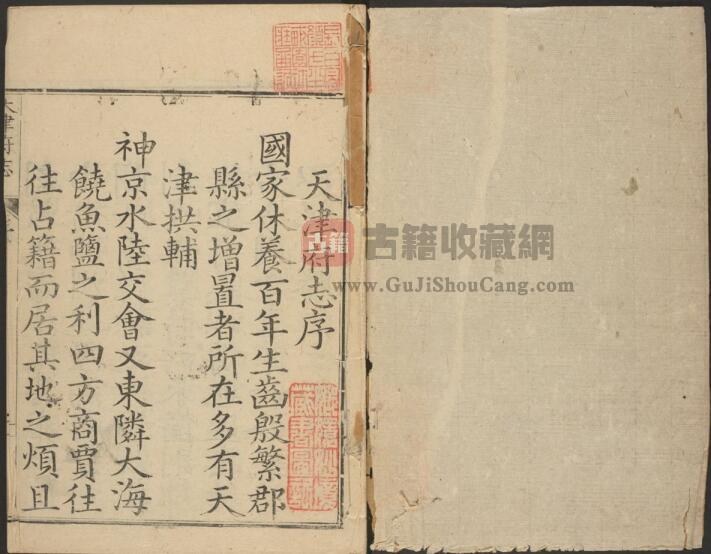 天津府志序
國家休養百年生齒殷繁郡
縣之增置者所在多有天
津拱輔
神京水陸交會又東隣大海
饒魚鹽之利四方商賈往
往占籍而居其地之煩且
天津府志
古籍
古籍收藏網
www.GuJiShouCang.com